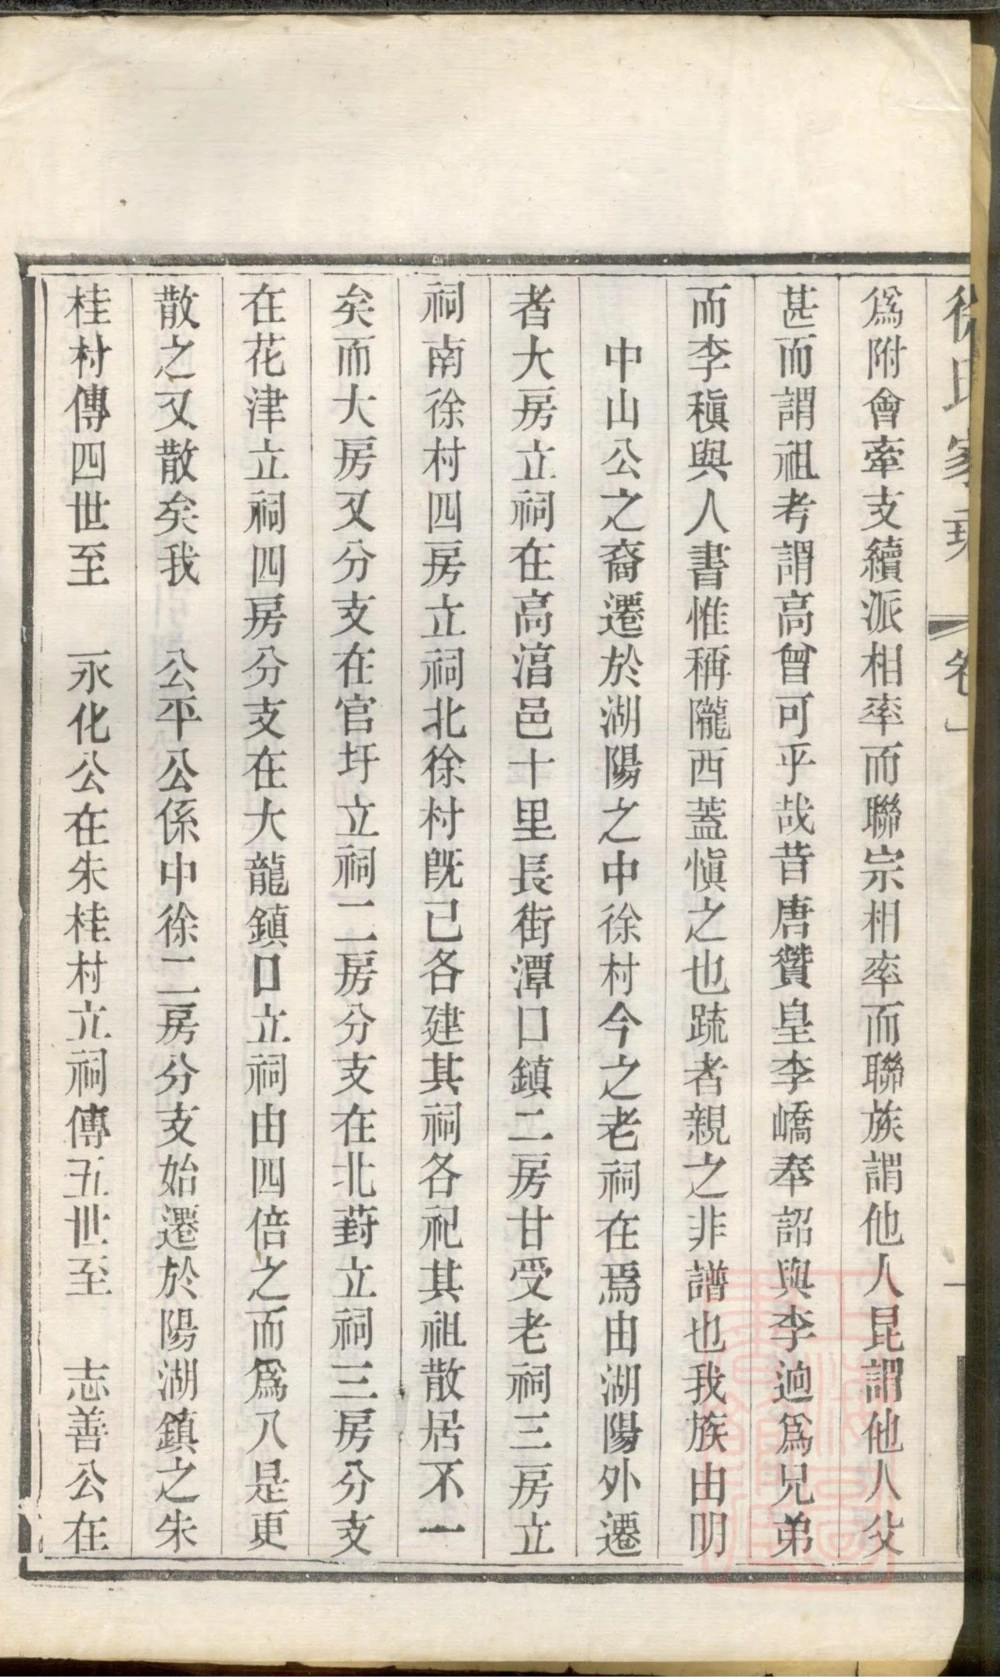 徐氏家乘　卷一　一
爲附會牽支續派相率而聯宗相率而聯族謂他人昆謂他人父
甚而謂祖考謂高曾可乎哉昔唐贊皇李嶠奉詔與李迥爲兄弟
而李稹與人書惟稱隴西蓋愼之也䟽者親之非譜也我族由明
中山公之裔遷於湖陽之中徐村今之老祠在焉由湖陽外遷
者大房立祠在高淯邑十里長街潭口鎭二房甘受老祠三房立
祠南徐村四房立祠北徐村旣已各建其祠各祀其祖散居不一
矣而大房又分支在官圩立祠二房分支在北葑立祠三房分支
在花津立祠四房分支在大龍鎭口立祠由四倍之而爲八是更
散之又散矣我　公平公係中徐二房分支始遷於陽湖鎭之朱
桂村傳四世至　永化公在朱桂村立祠傳五世至　志善公在